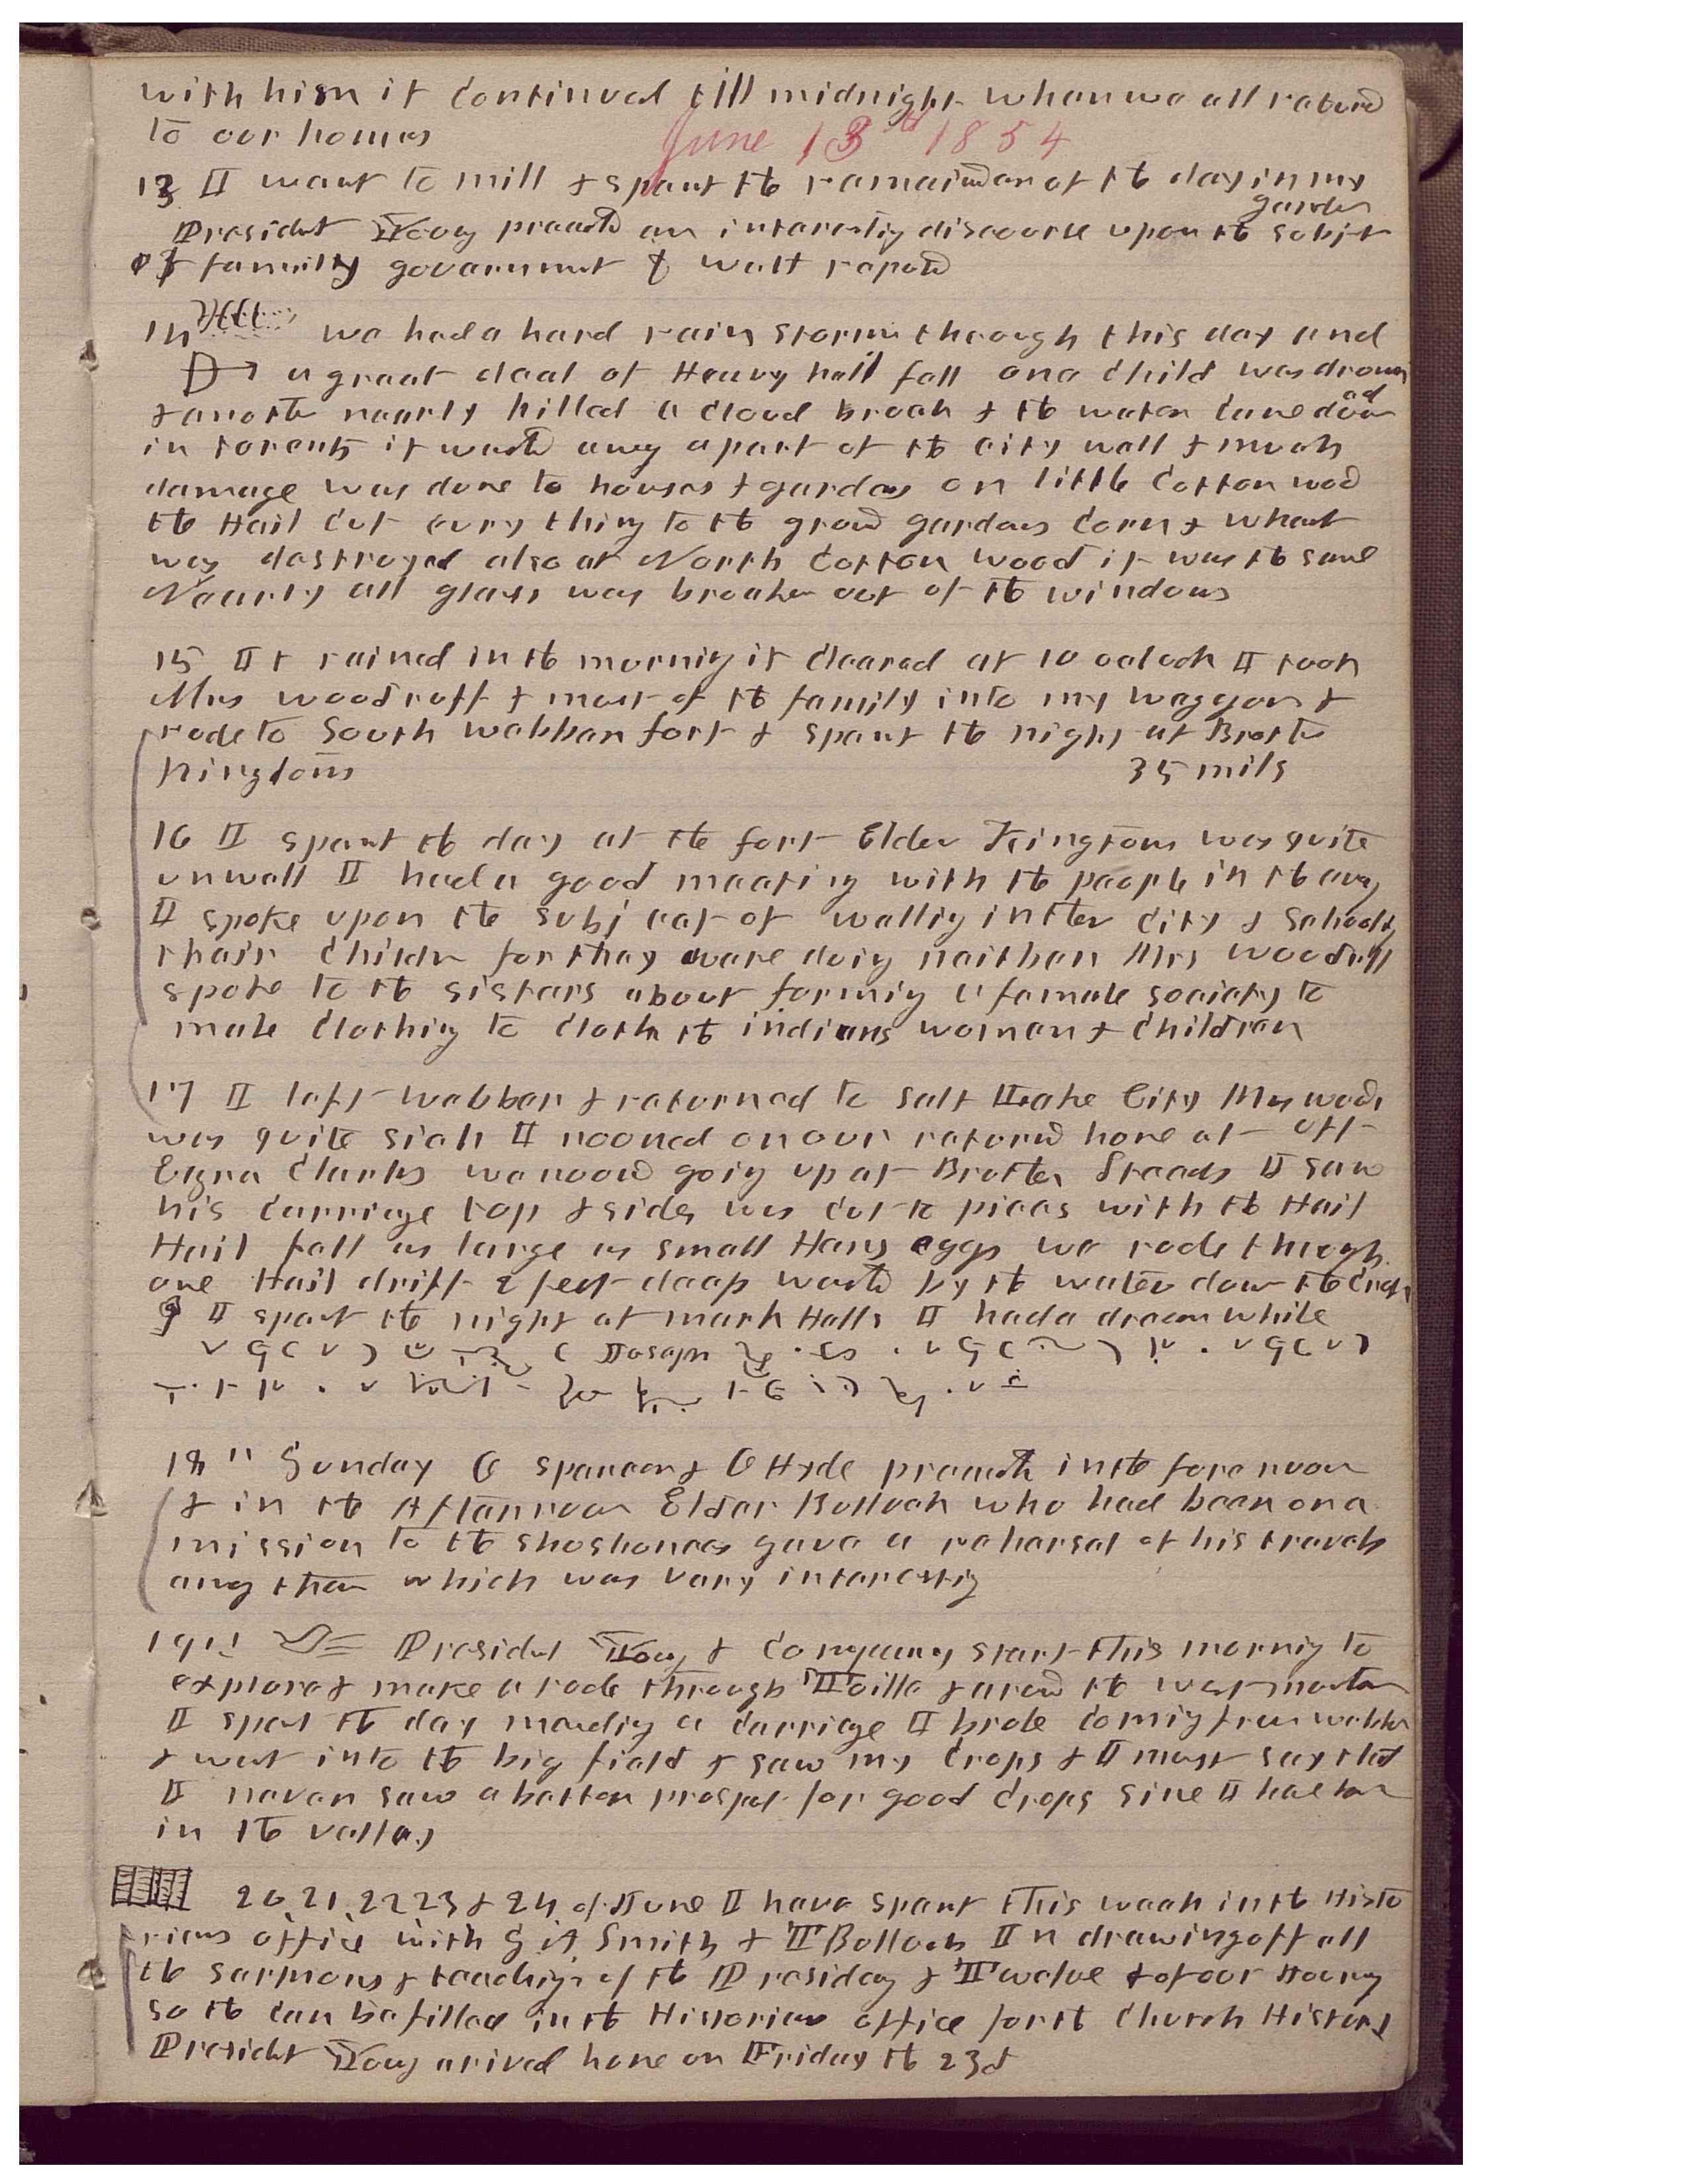 with him it continued till midnight when we all returd
to our homes June 13th 1854
13 I went to mill & spent the remainder of the day in my
garden
President Young preachd an interestig discourse upon the subjet
of family government & well reportd
14 we had a hard rain storm through this day and
a great deal of Heavy hail fell one child was drownd
ed
& anothr nearly killed a cloud broak & the water came down
in torents it washd away a part of the city wall & much
damage was done to houses & gardens on little Cotton wood
the Hail cut evry thing to the ground gardens corn & wheat
was destroyed also at North Cotton wood it was the same
Nearly all glass was broaken out of the windows
15 It rained in the mornig it cleared at 10 oclock I took
Mrs woodruff & most of the family into my waggon &
rode to South webber fort & spent the night at Brother
Kingtons 35 mils
16 I spent the day at the fort Elder Kingtons was quite
unwell I had a good meetig with the people in the eveng
I spoke upon the subject of wallig in ther city & schoolg
their childrn for they ware doig neither Mrs woodruff
spoke to the sisters about formig a female society to
make clothig to cloth the indians women & children
17 I left webber & returned to Salt Lake City Mrs wood
was quite sick I nooned on our return home at
Ezra Clarks we noond goig up at Brother Steeds I saw
his carriage top & sides was cut to pieces with the Hail
Hail fell as large as small Hens eggs we rode through
one Hail drift 2 feet deep washd by the water down the creek
I spent the night at mark Halls I had a dream while
Joseph
18" Sunday O Spencer & O Hyde preachd in the forenoon
& in the Afternoon Elder Bullock who had been on a
mission to the shoshones gave a rehersal of his travels
amg them which was very interestig
19" Presidet Young & Company start this mornig to
explore & make a rode through Toilla & around the west mountn
I spent the day mendig a carriage I broke comig from webber
& went into the big field & saw my crops & I must say that
I never saw a better prospect for good crops sine I have ben
in the valley
20, 21, 22 23 & 24 of June I have spent this week in the Histo
rians office with G A Smith & T Bullock In drawing off all
the sermons & teachigs of the Presidency & Twelve & of our Hoory
so the can be filled in the Historians office for the Church History
President Young arived home on Friday the 23d